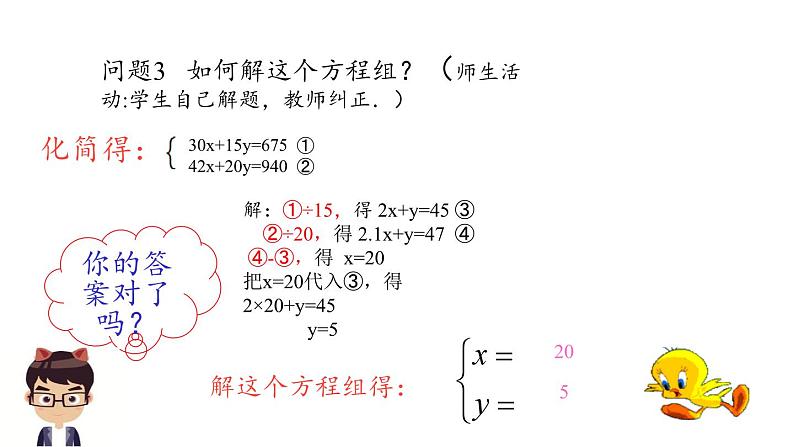 问题3 如何解这个方程组？（师生活
动:学生自己解题，教师纠正．）
化简得：
30x+15y=675 ①
42x+20y=940 ②
解：①÷15，得 2x+y=45 ③
②÷20，得 2.1x+y=47 ④
④-③，得 x=20
把x=20代入③，得
2×20+y=45
y=5
你的答
案对了
吗？
解这个方程组得：
x = 20
y = 5